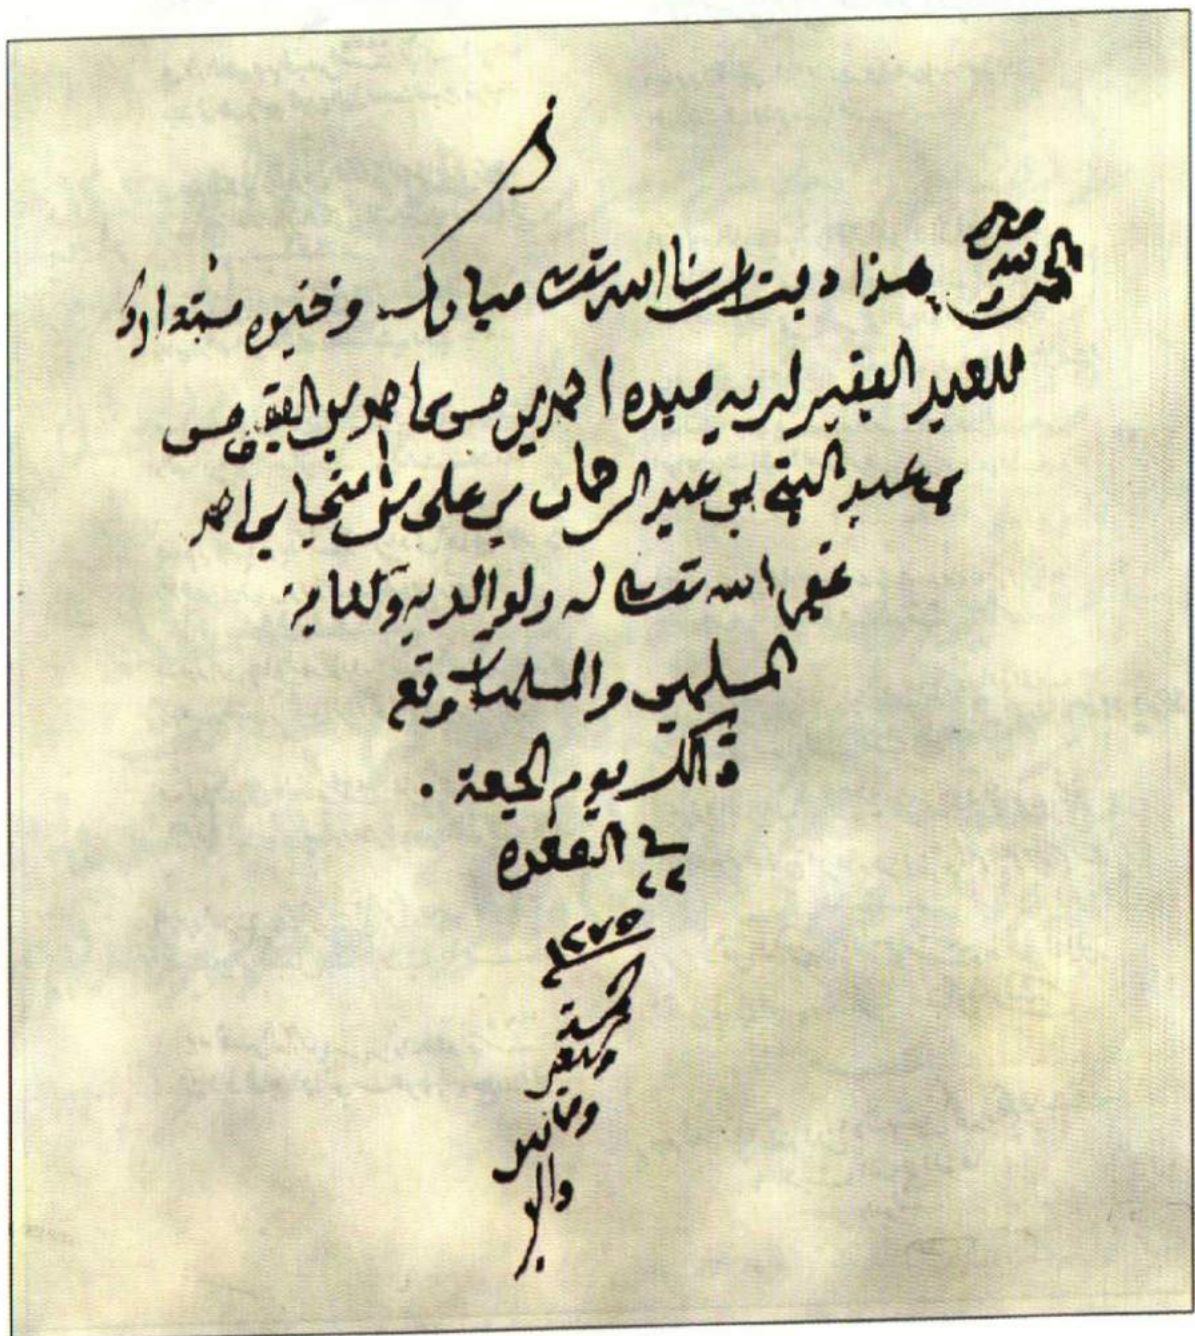 الحمد لله وحده
هذا دفتر انشا الله تعالى مبارك
للعبد الفقير لربه عبده احمد بن حسن بن احمد بن الفقي حسن
بن عبد بن عبد الرحمان بن علي بن احمد
غفر الله تعالى له ولوالديه ولكافة
المسلمين والمسلمات وقع
ذالك يوم الجمعة .
في القعدة
٢٢
١٢٧٥
خمسة
وسبعين
ومائتين
والف